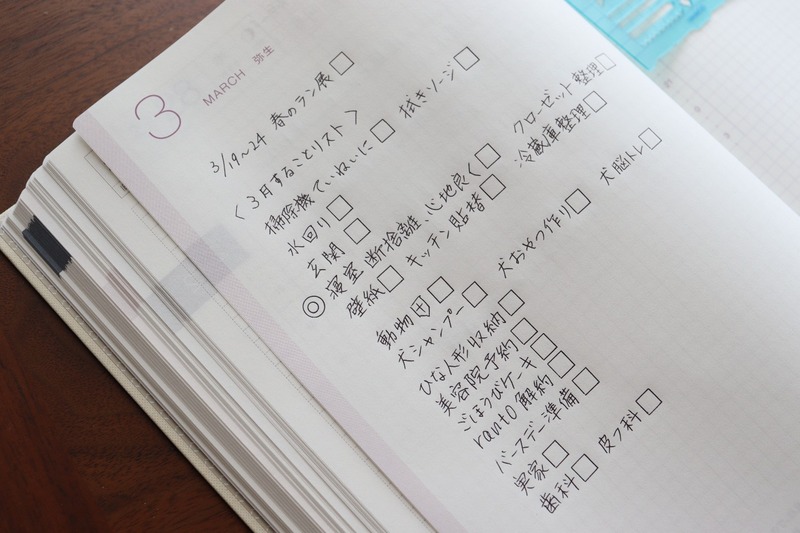 3 MARCH 弥生
3/19〜24 春のラン展□
〈3月することリスト〉
掃除機ていねいに□ 拭きソージ□
水回り□
玄関□
◎寝室 断捨離、心地良く□ クローゼット整理□
壁紙□ キッチン貼替□ 冷蔵庫整理□
動物□
犬シャンプー□ 犬おやつ作り□ 犬脳トレ□
ひな人形収納□
美容院予約□
ごほうびケーキ□
ranto解約□
バースデー準備□
実家□
歯科□ 皮フ科□